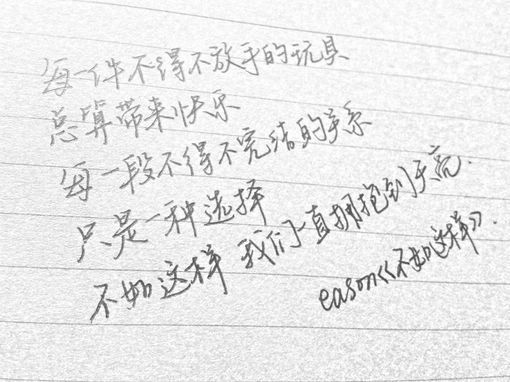 每一件不得不放手的玩具
总算带来快乐
每一段不得不完结的关系
只是一种选择
不如这样 我们一直拥抱到天亮.
eason《不如这样》.